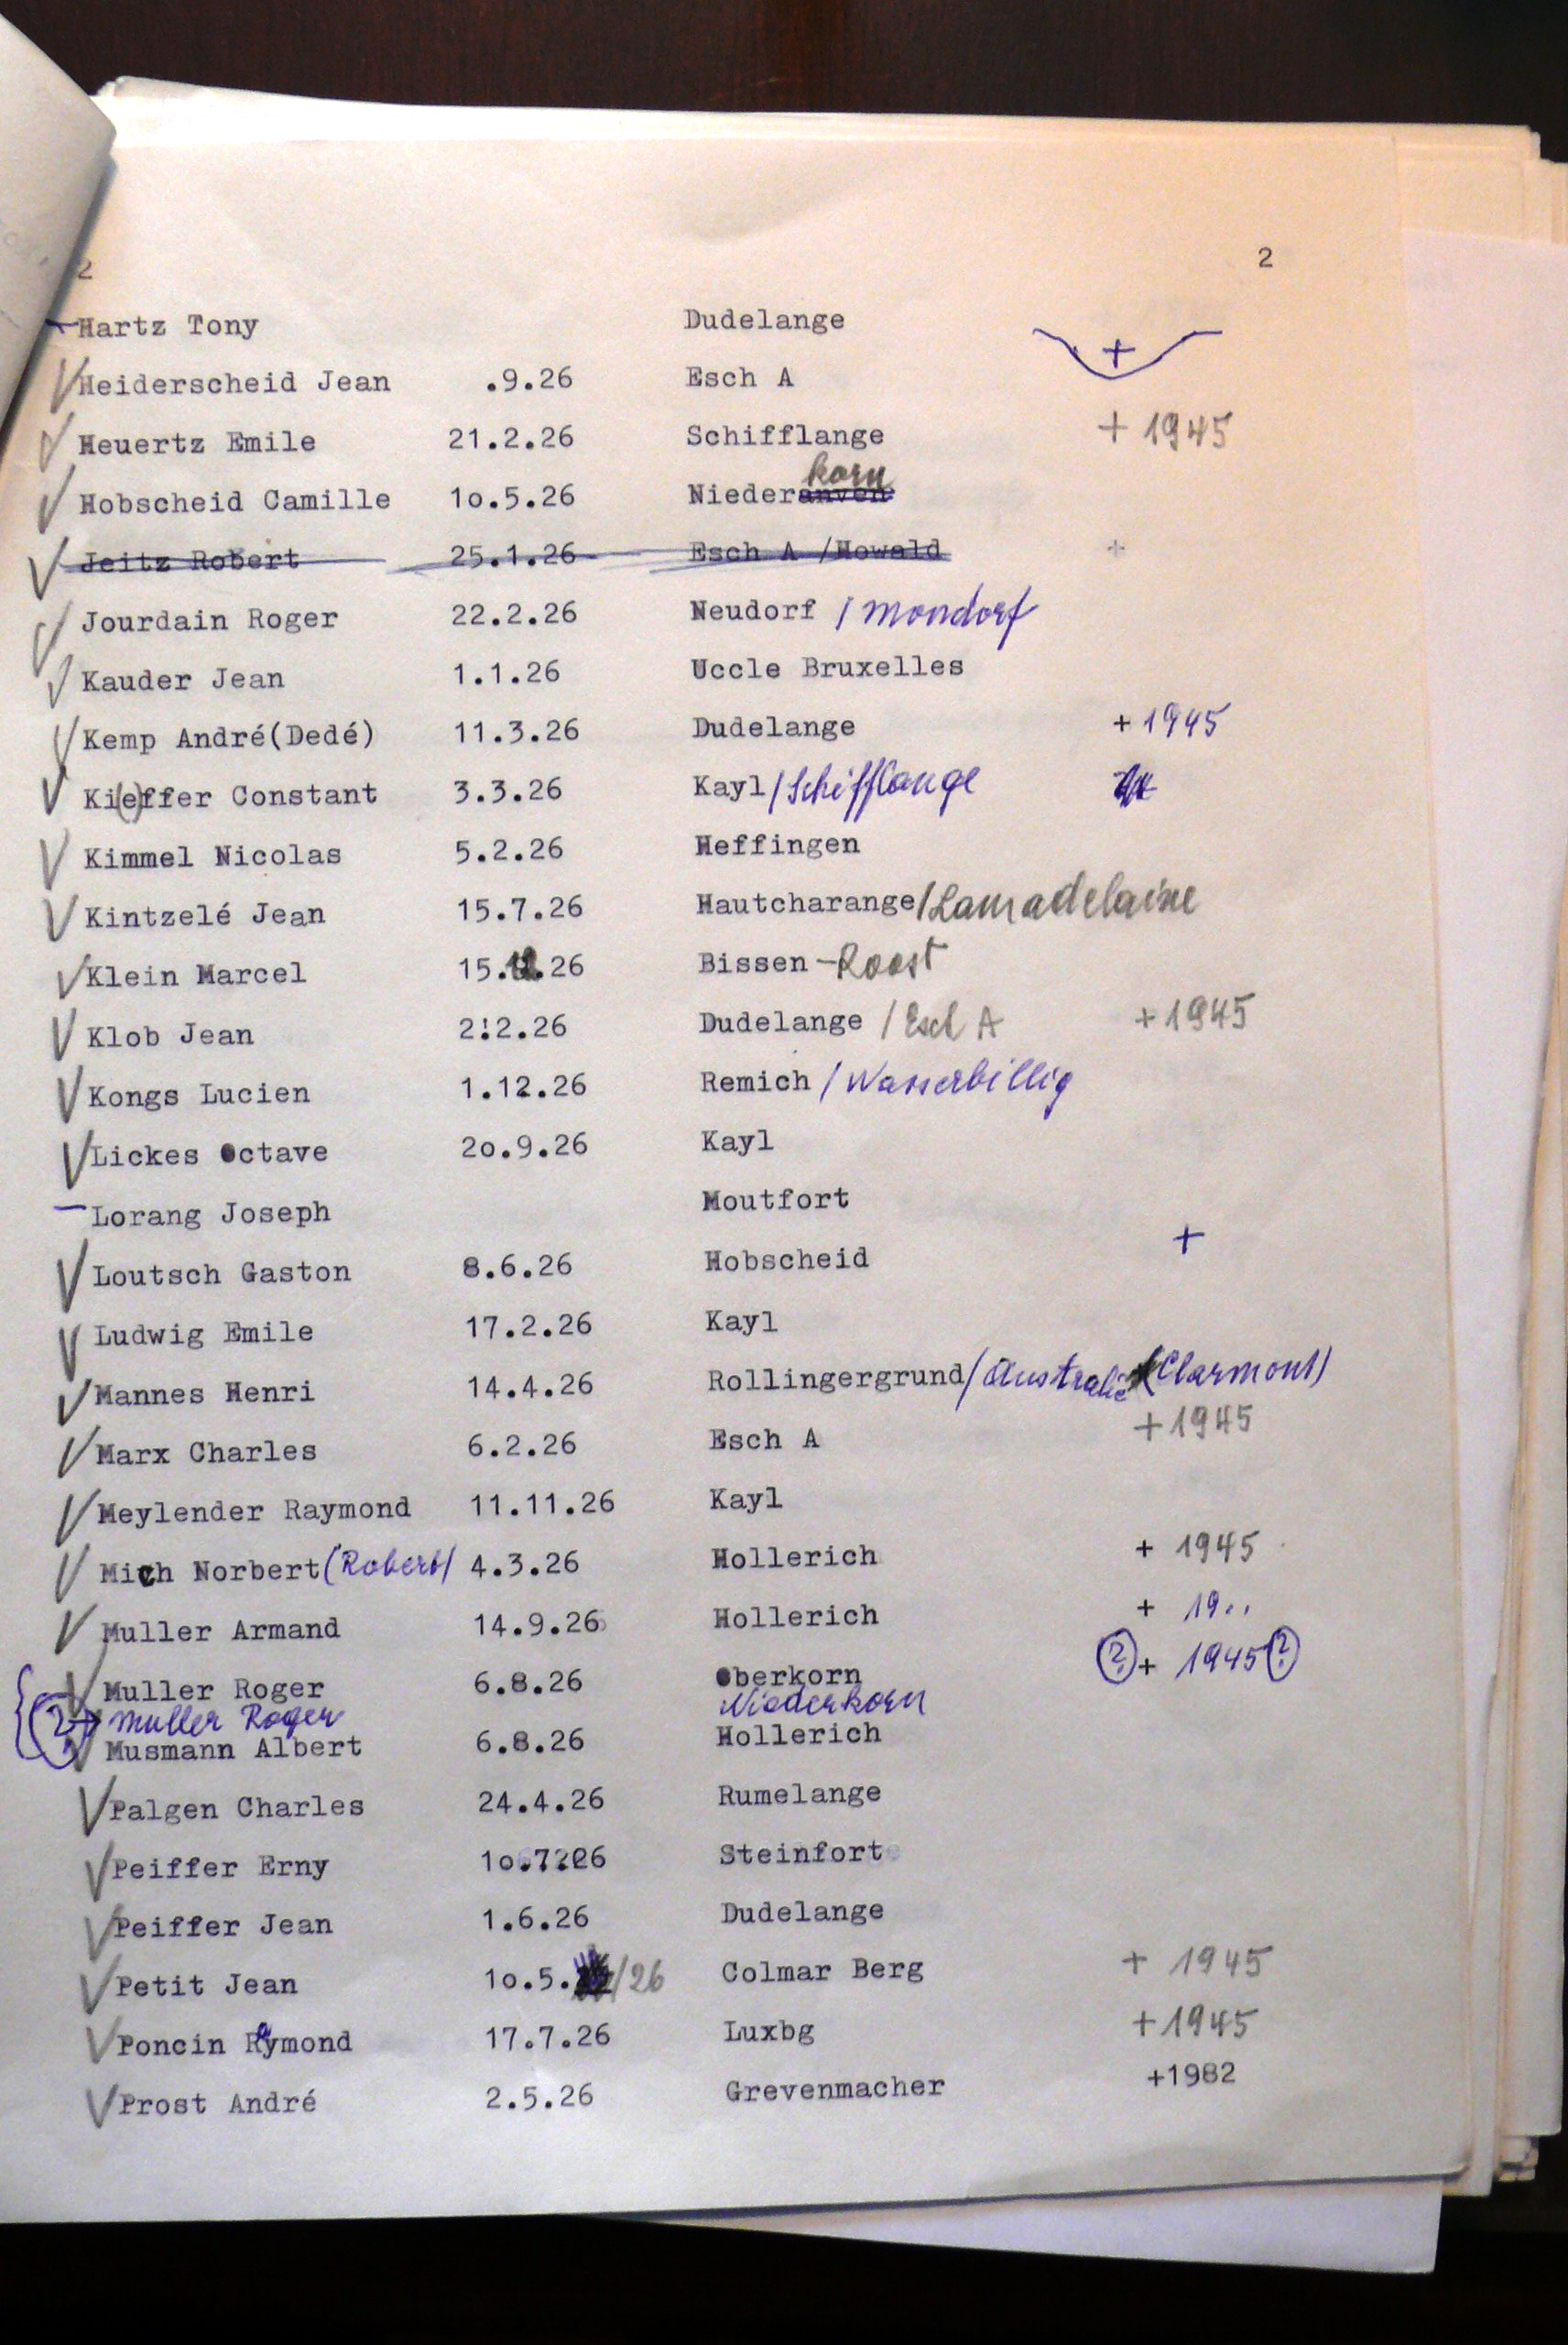 2 2
Hartz Tony Dudelange
Heiderscheid Jean .9.26 Esch A +
Heuertz Emile 21.2.26 Schifflange + 1945
Hobscheid Camille 1o.5.26 Niederanven korn
Jeitz Robert 25.1.26 Esch A /Howald +
Jourdain Roger 22.2.26 Neudorf / Mondorf
Kauder Jean 1.1.26 Uccle Bruxelles
Kemp André(Dedé) 11.3.26 Dudelange + 1945
Ki(e)ffer Constant 3.3.26 Kayl /Schifflange
Kimmel Nicolas 5.2.26 Heffingen
Kintzelé Jean 15.7.26 Hautcharange/Lamadelaine
Klein Marcel 15.12.26 Bissen -Roost
Klob Jean 2!2.26 Dudelange / Esch A +1945
Kongs Lucien 1.12.26 Remich / Wasserbillig
Lickes Octave 2o.9.26 Kayl
Lorang Joseph Moutfort
Loutsch Gaston 8.6.26 Hobscheid +
Ludwig Emile 17.2.26 Kayl
Mannes Henri 14.4.26 Rollingergrund/Australie (Clarmont)
Marx Charles 6.2.26 Esch A +1945
Meylender Raymond 11.11.26 Kayl
Mich Norbert (Robert) 4.3.26 Hollerich + 1945
Muller Armand 14.9.26 Hollerich + 19..
Muller Roger 6.8.26 Oberkorn (?) + 1945 (?)
(?) Muller Roger Niederkorn
Musmann Albert 6.8.26 Hollerich
Palgen Charles 24.4.26 Rumelange
Peiffer Erny 1o.7.26 Steinfort
Peiffer Jean 1.6.26 Dudelange
Petit Jean 1o.5. /26 Colmar Berg + 1945
Poncin Raymond 17.7.26 Luxbg +1945
Prost André 2.5.26 Grevenmacher +1982